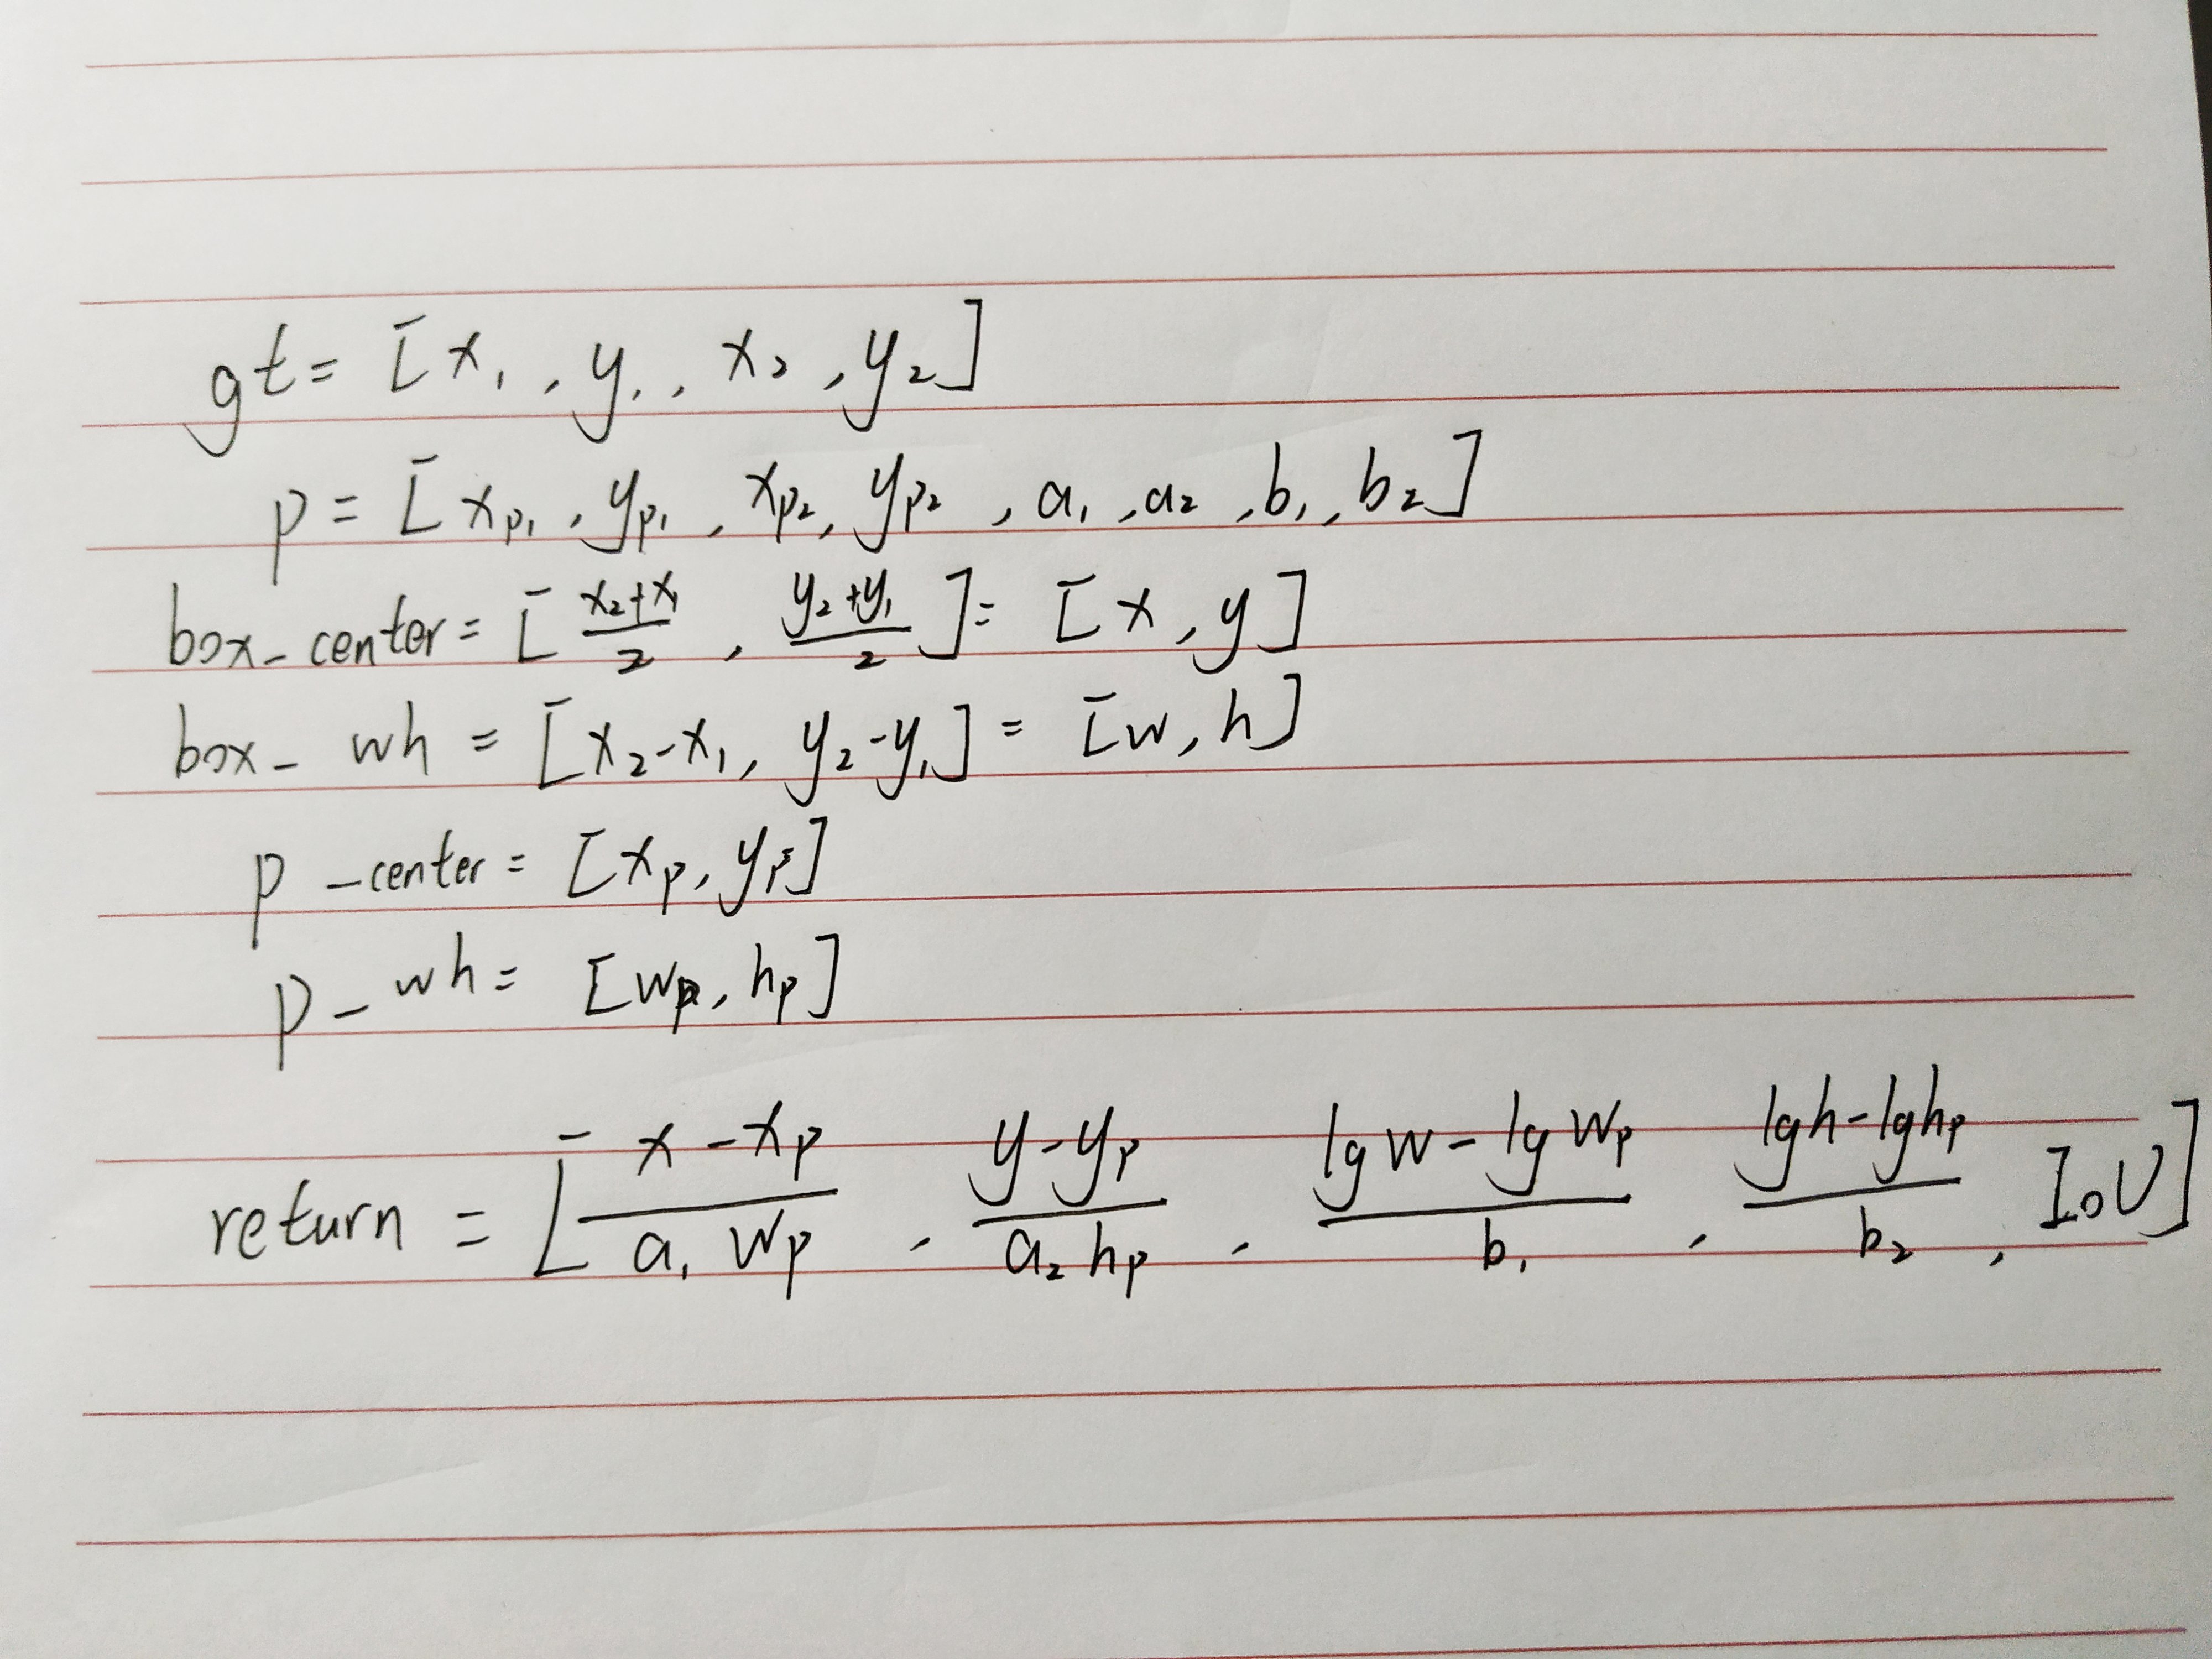 gt = [x₁, y₁, x₂, y₂]
p = [xp₁, yp₁, xp₂, yp₂, a₁, a₂, b₁, b₂]
box-center = [(x₂+x₁)/2, (y₂+y₁)/2] = [x, y]
box-wh = [x₂-x₁, y₂-y₁] = [w, h]
p-center = [xp, yp]
p-wh = [wp, hp]
return = [(x-xp)/(a₁wp), (y-yp)/(a₂hp), (lgw-lgwp)/b₁, (lgh-lghp)/b₂, IoU]